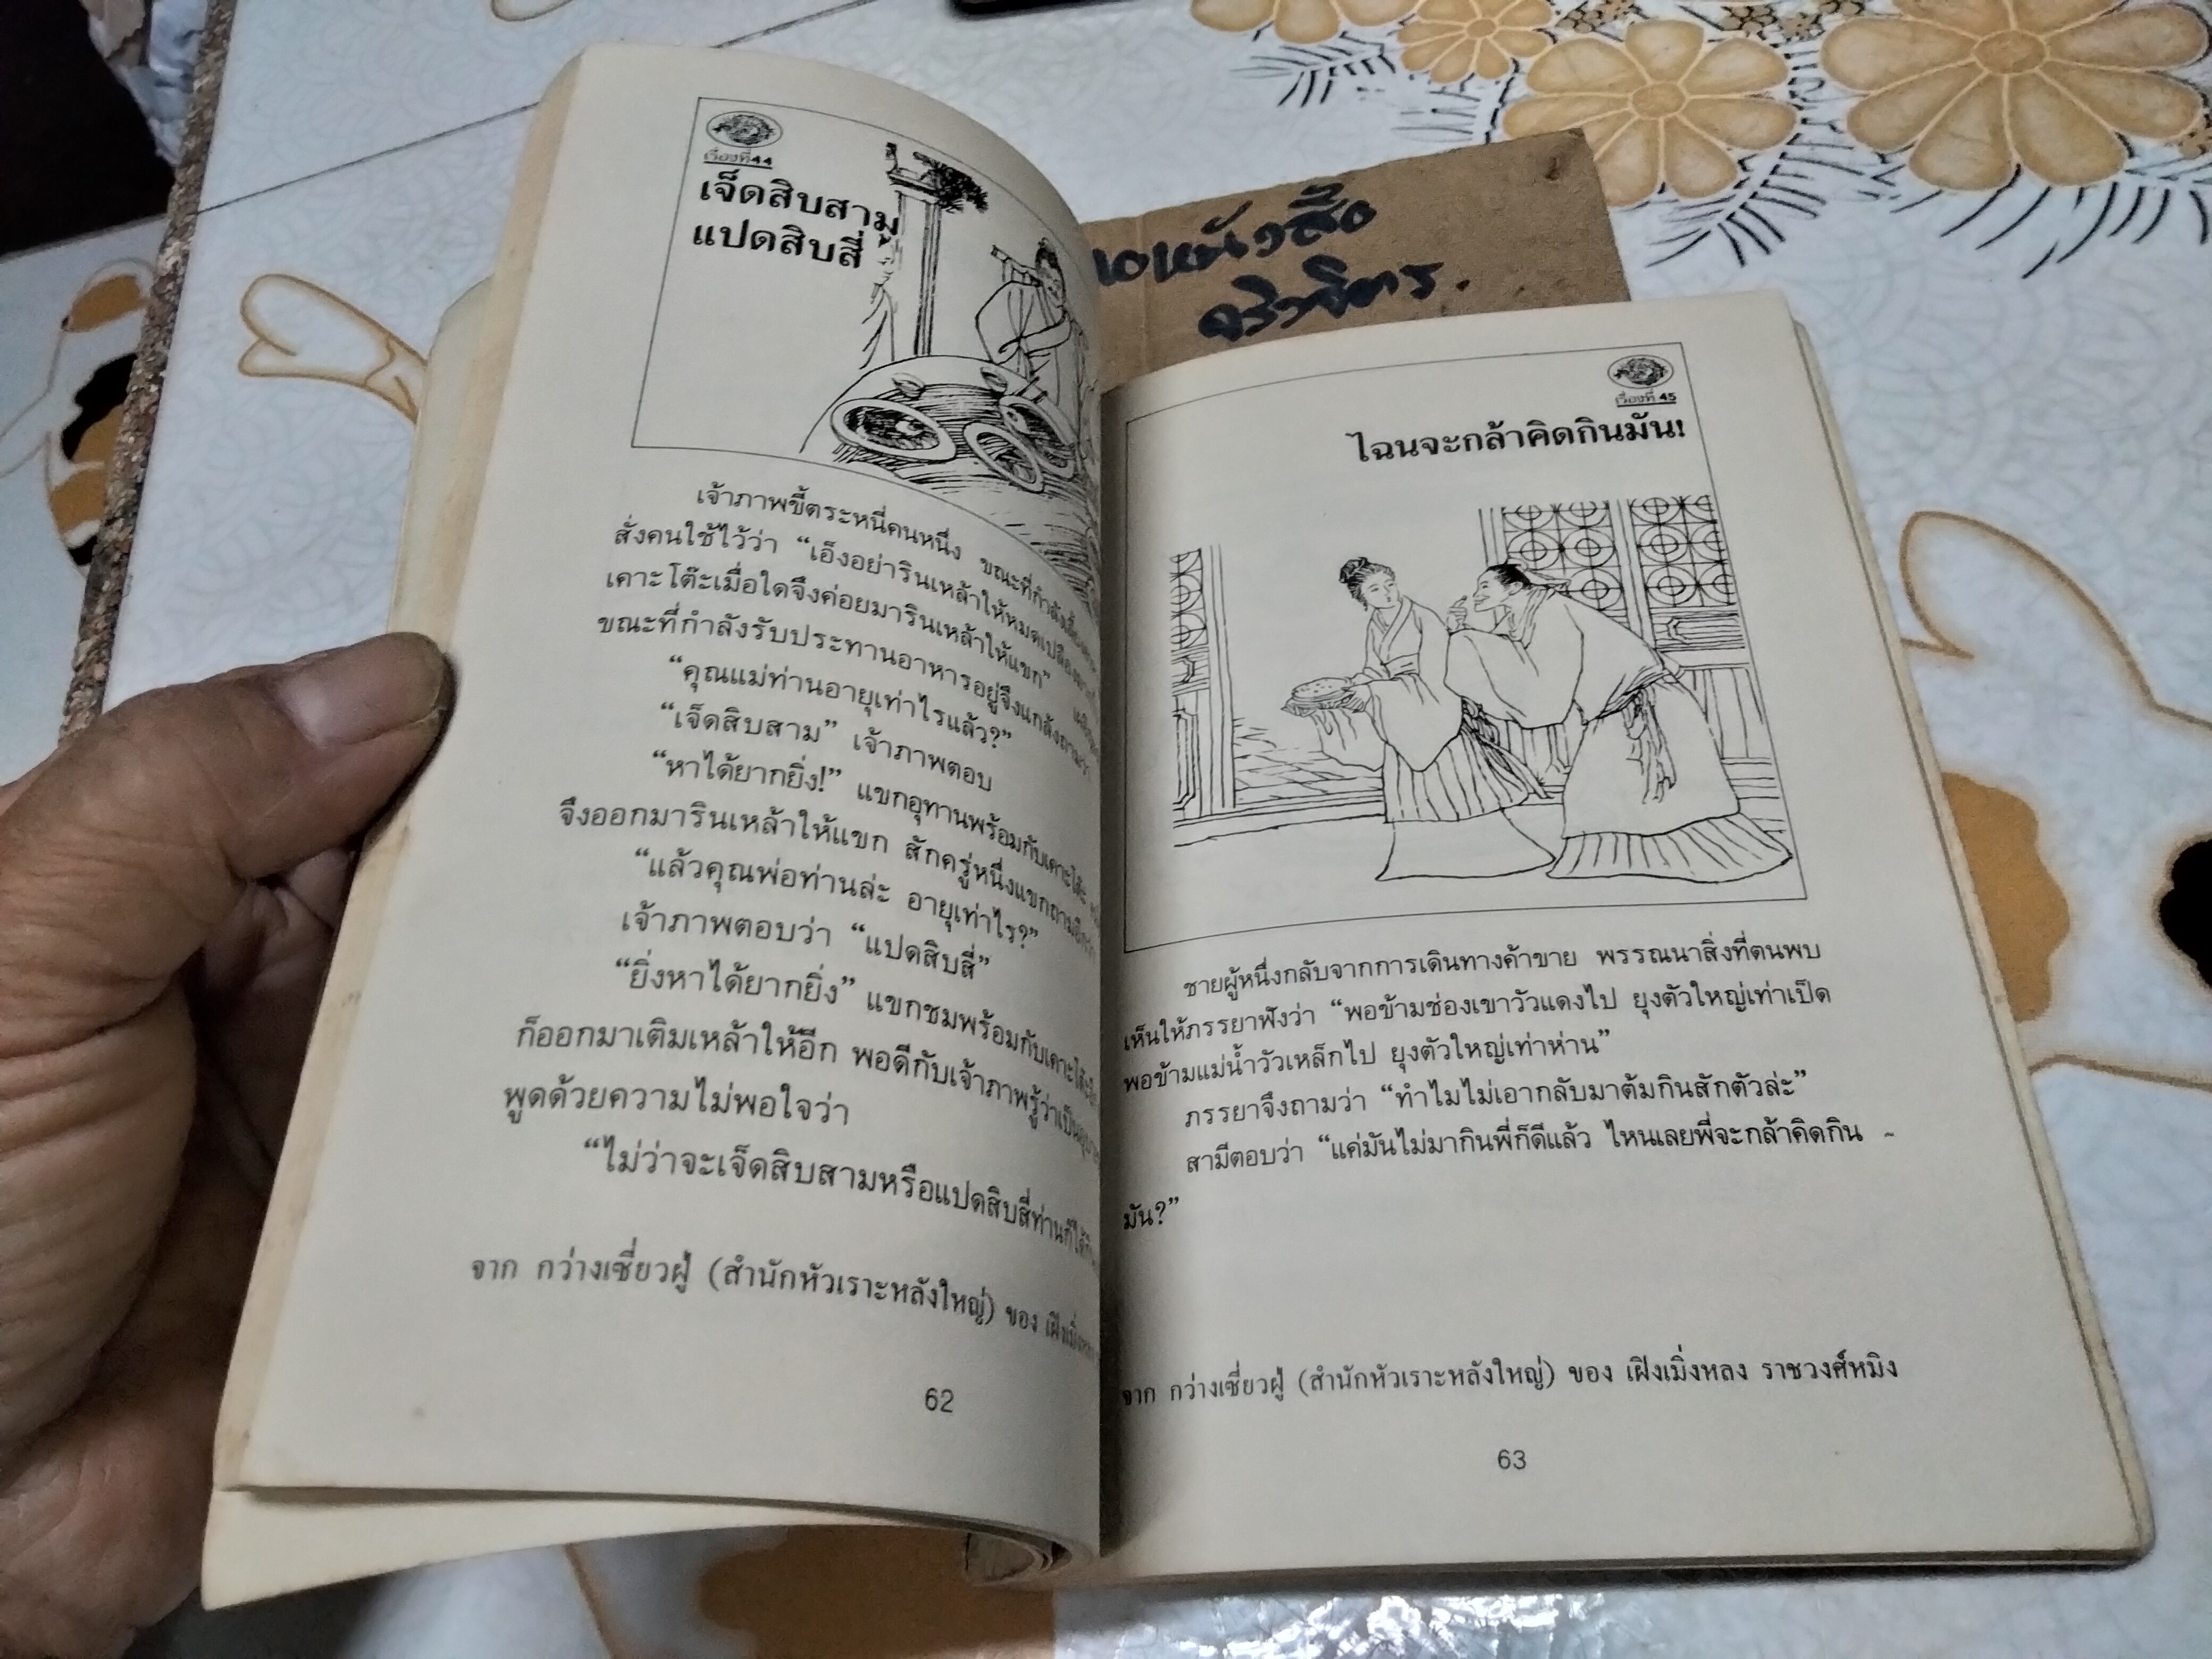 เรื่องที่ 44
เจ็ดสิบสาม
แปดสิบสี่
เจ้าภาพขี้ตระหนี่คนหนึ่ง ขณะที่กำลัง
สั่งคนใช้ไว้ว่า “เอ็งอย่ารินเหล้าให้หมดเปลือง
เคาะโต๊ะเมื่อใดจึงค่อยมารินเหล้าให้แขก”
ขณะที่กำลังรับประทานอาหารอยู่จึงแกล้งถามว่า
“คุณแม่ท่านอายุเท่าไรแล้ว?”
“เจ็ดสิบสาม” เจ้าภาพตอบ
“หาได้ยากยิ่ง!” แขกอุทานพร้อมกับเคาะโต๊ะ
จึงออกมารินเหล้าให้แขก สักครู่หนึ่งแขกถามอีกว่า
“แล้วคุณพ่อท่านล่ะ อายุเท่าไร?”
เจ้าภาพตอบว่า “แปดสิบสี่”
“ยิ่งหาได้ยากยิ่ง” แขกชมพร้อมกับเคาะโต๊ะ
ก็ออกมาเติมเหล้าให้อีก พอดีกับเจ้าภาพรู้ว่าเป็น
พูดด้วยความไม่พอใจว่า
“ไม่ว่าจะเจ็ดสิบสามหรือแปดสิบสี่ท่านก็ได้
จาก กว่างเซี่ยวฝู่ (สำนักหัวเราะหลังใหญ่) ของ เฝิงเมิ่งหลง
62
อหนังสือ
จริงจิตร.
เรื่องที่ 45
ไฉนจะกล้าคิดกินมัน!
ชายผู้หนึ่งกลับจากการเดินทางค้าขาย พรรณนาสิ่งที่ตนพบ
เห็นให้ภรรยาฟังว่า “พอข้ามช่องเขาวัวแดงไป ยุงตัวใหญ่เท่าเป็ด
พอข้ามแม่น้ำวัวเหล็กไป ยุงตัวใหญ่เท่าห่าน”
ภรรยาจึงถามว่า “ทำไมไม่เอากลับมาต้มกินสักตัวล่ะ”
สามีตอบว่า “แค่มันไม่มากินพี่ก็ดีแล้ว ไหนเลยพี่จะกล้าคิดกิน -
มัน?”
จาก กว่างเซี่ยวฝู่ (สำนักหัวเราะหลังใหญ่) ของ เฝิงเมิ่งหลง ราชวงศ์หมิง
63